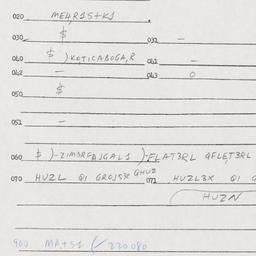 020 MEH,R15+K1
030 $ 031 -
040 $ )KOTICABOGA,R 041 -
042 - 043 0
050 $
051 -
060 $ )-ZIMBRFAJGAL1 )-FLAT3RL GFLE,T3RL
070 HUZL QI GROJS3X GHUZ 071 HUZL3X QI G
HUZN
900 MA,+S1 (/220080